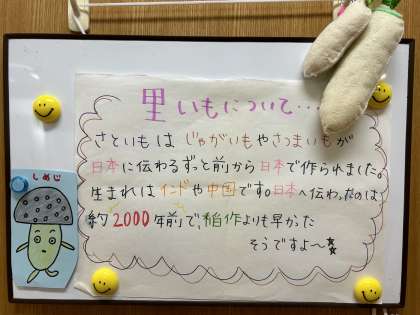 里いもについて・・・
さといもは じゃがいもやさつまいもが
日本に伝わるずっと前から日本で作られました。
生まれはインドや中国です。日本へ伝わったのは
約2000年前で、稲作よりも早かった
そうですよ〜
しめじ